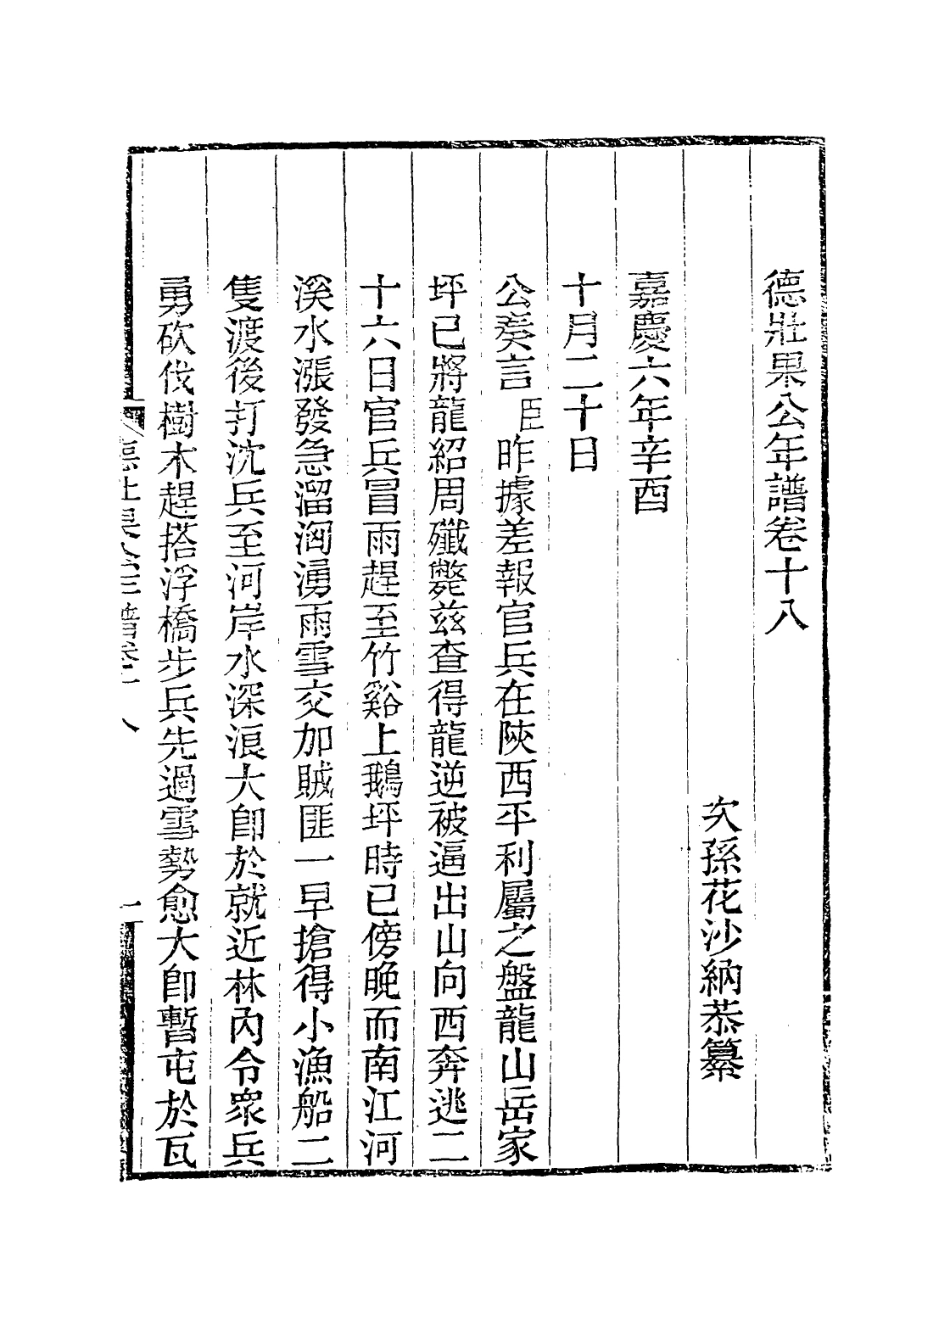 德壯果公年譜卷十八
次孫花沙納恭纂
嘉慶六年辛酉
十月二十日
公奏言臣昨據差報官兵在陝西平利屬之盤龍山岳家
坪已將龍紹周殲斃茲查得龍逆被逼出山向西奔逃二
十六日官兵冒雨趕至竹谿上鵝坪時已傍晚而南江河
溪水漲發急溜洶湧雨雪交加賊匪一早搶得小漁船二
隻渡後打沈兵至河岸水深浪大卽於就近林內令衆兵
勇砍伐樹木趕搭浮橋步兵先過雪勢愈大卽暫屯於瓦
德壯果公年譜卷十八
一